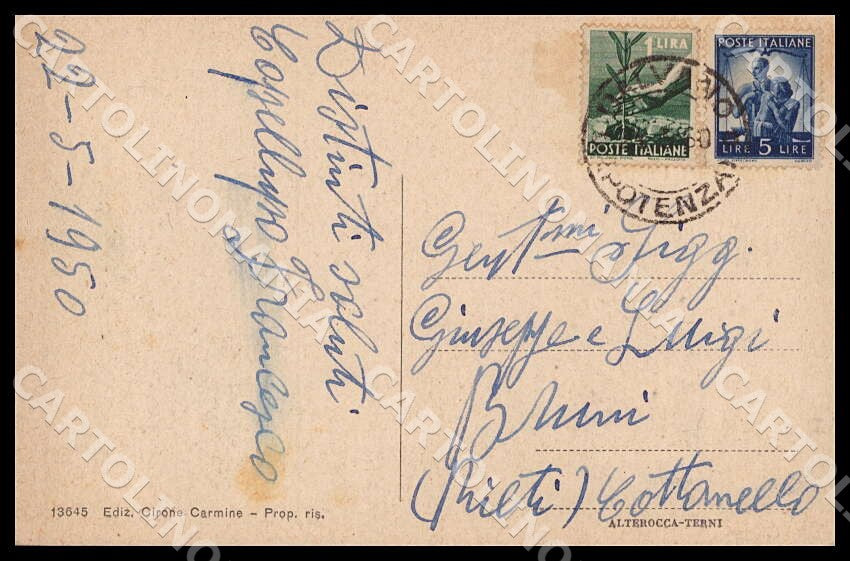 22-5-1950
Distinti saluti
Francesco
13645 Ediz. Cirone Carmine - Prop. ris.
1 LIRA
POSTE ITALIANE
POSTE ITALIANE
LIRE 5 LIRE
POTENZA
Gent.mi Sigg.
Giuseppe e Luigi
Bruni
(Rieti) Cottanello
ALTEROCCA-TERNI
CARTOLINOMANIA